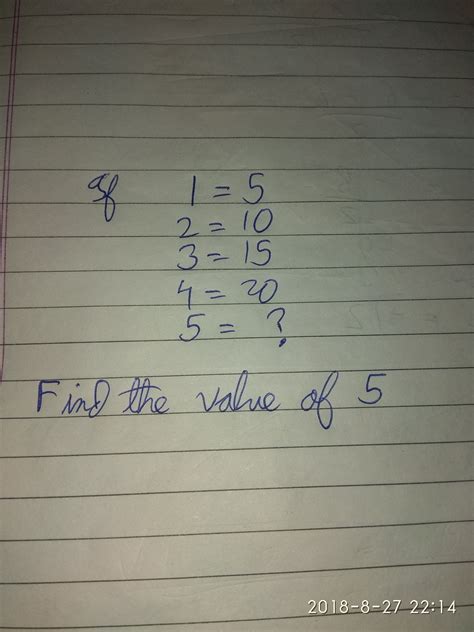 If 1 = 5
2 = 10
3 = 15
4 = 20
5 = ?
Find the value of 5
2018-8-27 22:14